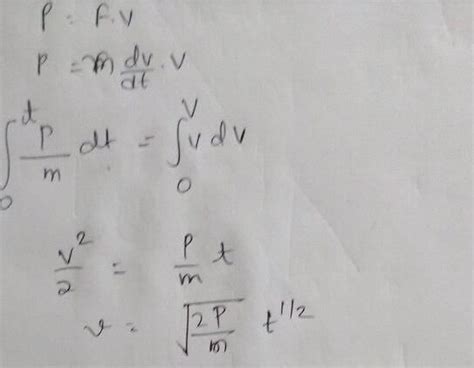 P = F.V
P = m dv/dt . V
∫₀ᵗ P/m dt = ∫₀ⱽ V dV
v²/2 = P/m t
v = √(2P/m) t^1/2